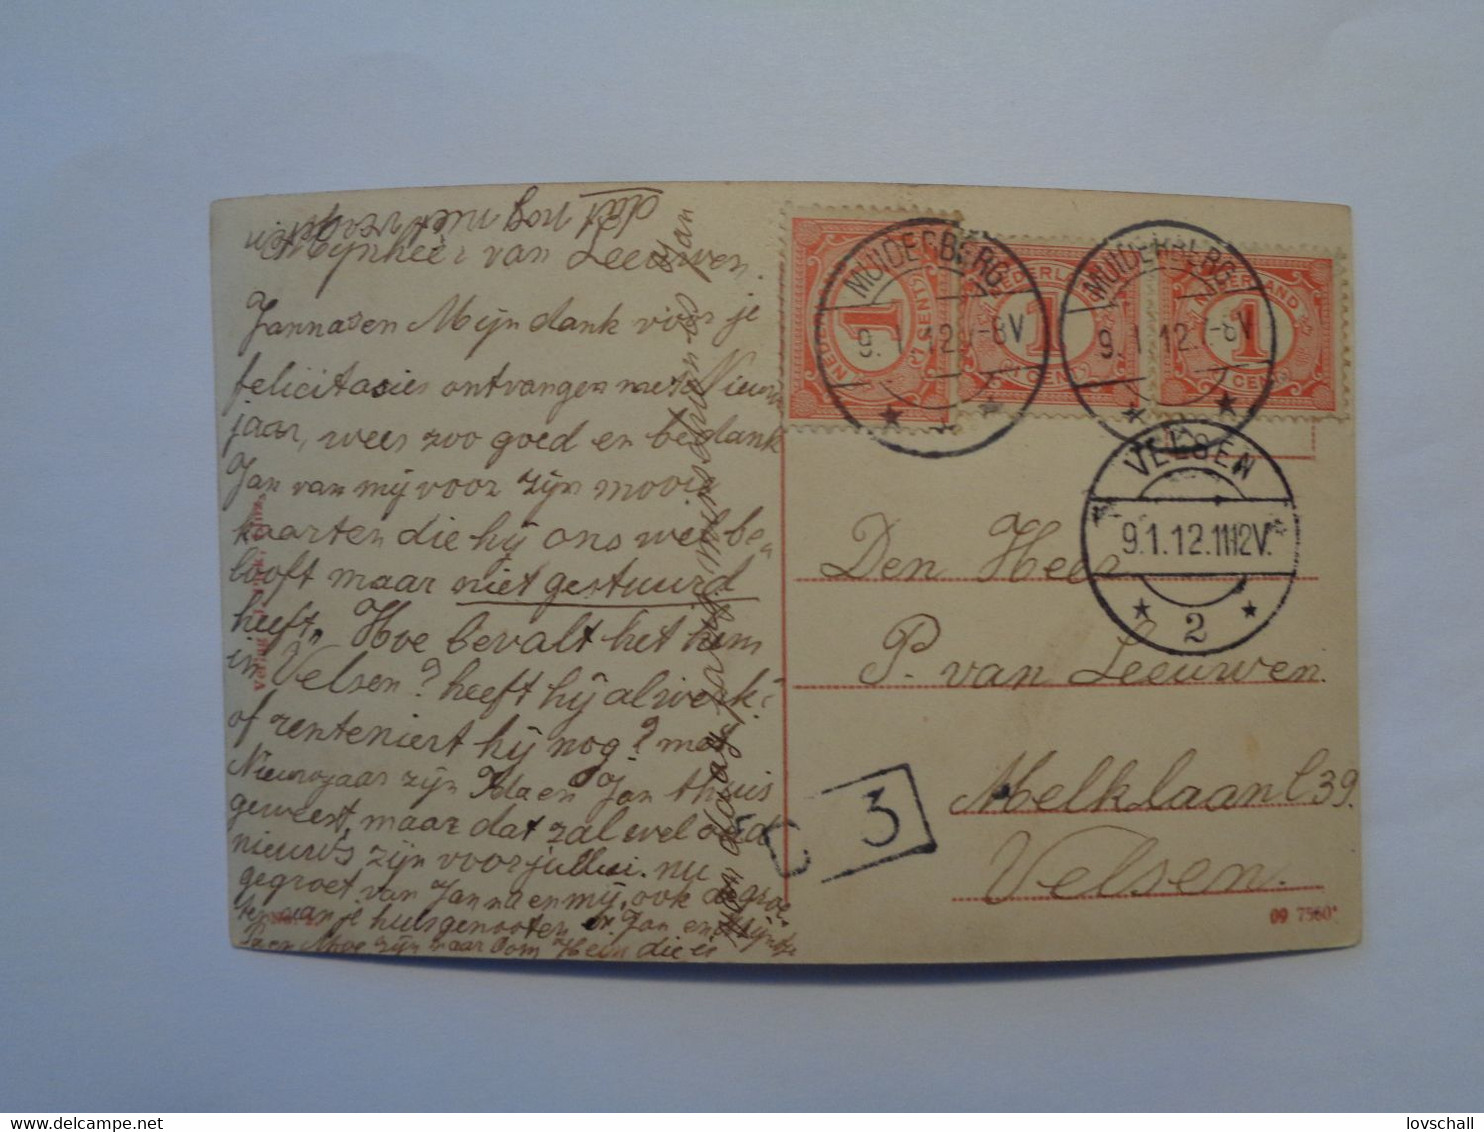 Mijnheer van Leeuwen.
Jannasen Mijn dank voor je
felicitasies ontvangen met Nieuw
jaar, wees zoo goed en bedank
Jan van mij voor zijn mooie
kaarten die hij ons wel be„
looft maar niet gestuurd
heeft„ Hoe bevalt het hem
in Velsen? heeft hij al werk?
of renteniert hij nog? met
Nieuwjaar zijn Ida en Jan thuis
geweest, maar dat zal wel oud
nieuws zijn voor jullie. nu
gegroet van Janna en mij, ook de groe„
ten van je huisgenooten
zijn maar Oom Hein die is
dat nog niet
NEDERLAND
1
CENT
NEDERLAND
1
CENT
NEDERLAND
1
CENT
MUIDERBERG
9.1.12.7-8V
MUIDERBERG
9.1.12.7-8V
VELSEN
9.1.12.11-12V.
2
Den Heer
P. van Leeuwen.
Melklaan C39.
Velsen.
3
09 7560
lovschall